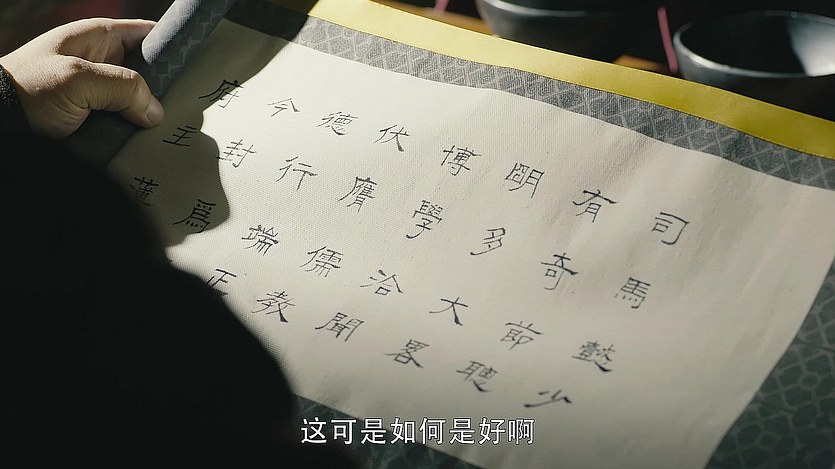 司馬懿少
有奇節聰
明多大畧
博學洽聞
伏膺儒教
德行端正
今封爲
府主
这可是如何是好啊